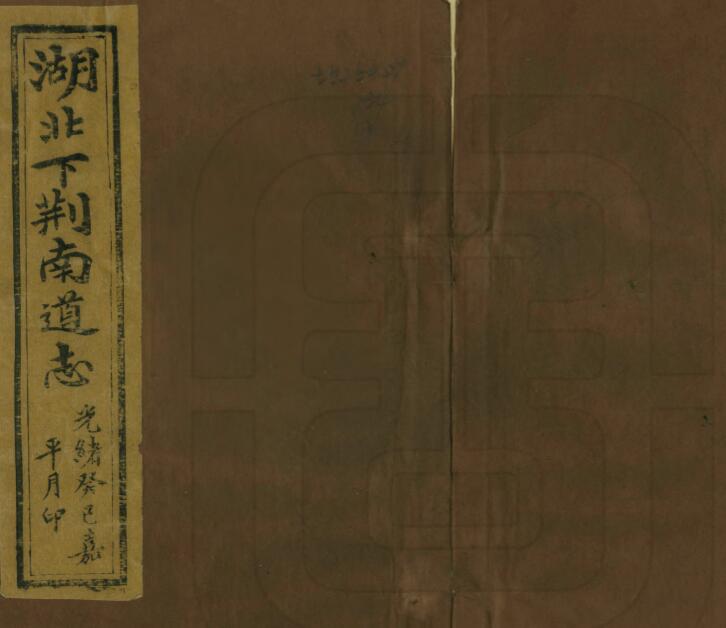 湖北下荆南道志
光緒癸巳嘉
平月印